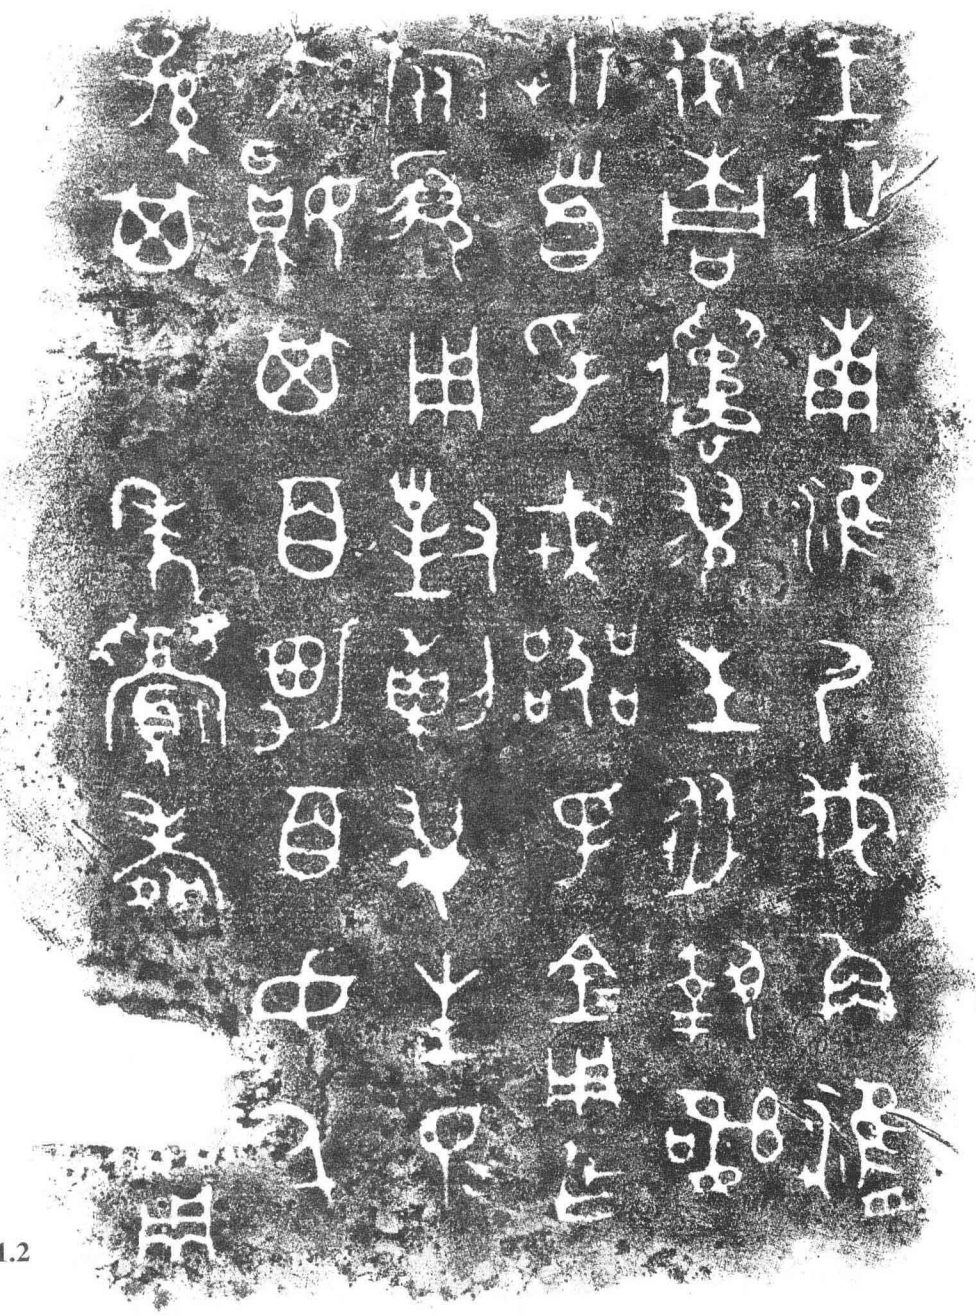 王征南淮尸伐角津
伐桐遹翏生從執訊
折首孚戎器孚金用乍
旅盨用對剌翏生眔
大妘其百男百女千
孫其年眉壽用
1.2